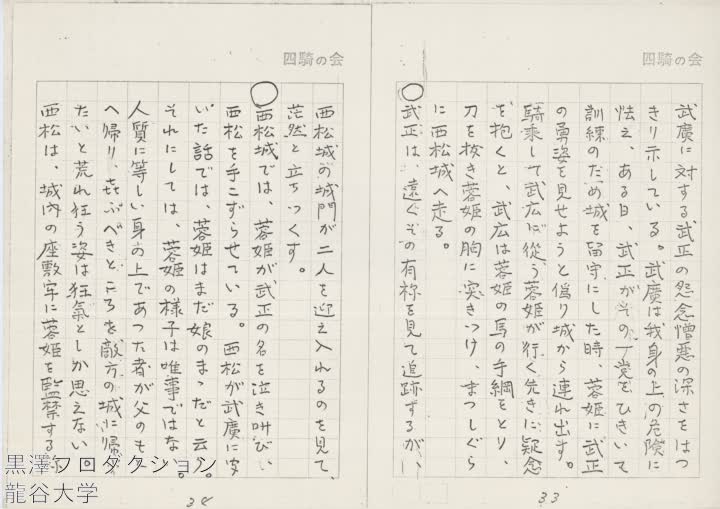 四騎の会
武廣に対する武正の怨念憎悪の深さをはつ
きり示している。武廣は我身の上の危険に
怯え、ある日、武正がその一党をひきいて
訓練のため城を留守にした時、蓉姫に武正
の勇姿を見せようと偽り城から連れ出す。
騎乗して武広に従う蓉姫が行く先きに疑念
を抱くと、武広は蓉姫の馬の手綱をとり、
刀を抜き蓉姫の胸に突きつけ、まつしぐら
に西松城へ走る。
○
武正は、遠くその有様を見て追跡するが、
33
四騎の会
西松城の城門が二人を迎え入れるのを見て、
茫然と立ちつくす。
○
西松城では、蓉姫が武正の名を泣き叫び、
西松を手こずらせている。西松が武廣に
いた話では、蓉姫はまだ娘のまゝだと云う。
それにしては、蓉姫の様子は唯事ではな
人質に等しい身の上であつた者が父のも
へ帰り、喜ぶべきところを敵方の城に帰
たいと荒れ狂う姿は狂氣としか思えない
西松は、城内の座敷牢に蓉姫を監禁する
34
黒澤プロダクション
龍谷大学